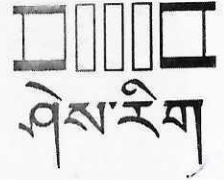 ཤེས་རིག